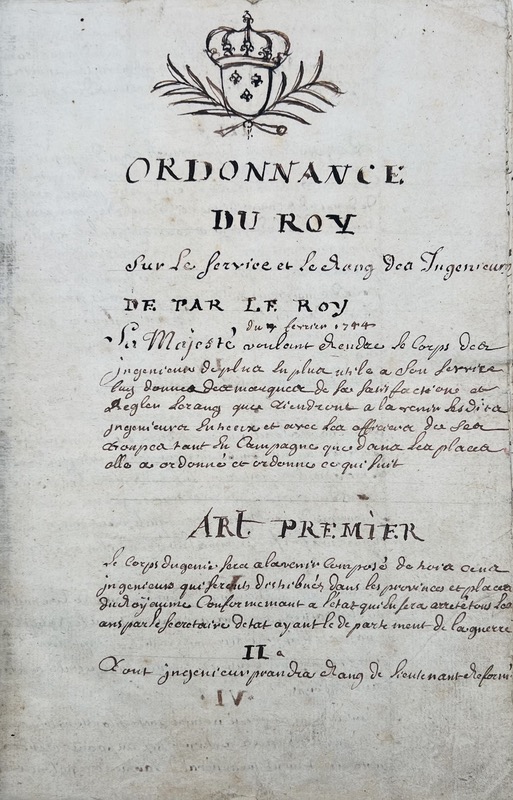 ORDONNANCE
DU ROY
Sur Le Service et le Rang des Ingenieurs
DE PAR LE ROY
du 7 fevrier 1744
Sa Majesté voulant Rendre le Corps des
jngenieurs de plus En plus utile a Son Service
luy donner des marques de Sa Satisfaction et
Regler Lerang que tiendront a lavenir lesdits
jngenieurs Entreeux et avec les officiers de Ses
troupes tant En Campagne que dans les places
elle a ordonné et ordonne ce qui Suit
ART PREMIER
Le Corps du genie Sera a lavenir Composé de trois cens
jngenieurs qui Seront distribués dans les provinces et places
du Royaume Conformement a l'état qui En Sera arreté tous les
ans par le Secretaire d'etat ayant le departement de la guerre
II
Tout jngenieur prendra Rang de lieutenant Reformé